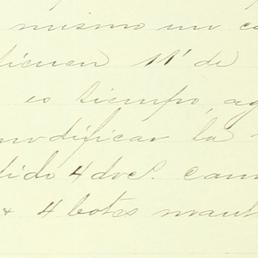 mismo un ca
licuen 11' de
es tiempo, ag
modificar la
dido 4 doc.s cam
& 4 botes mant